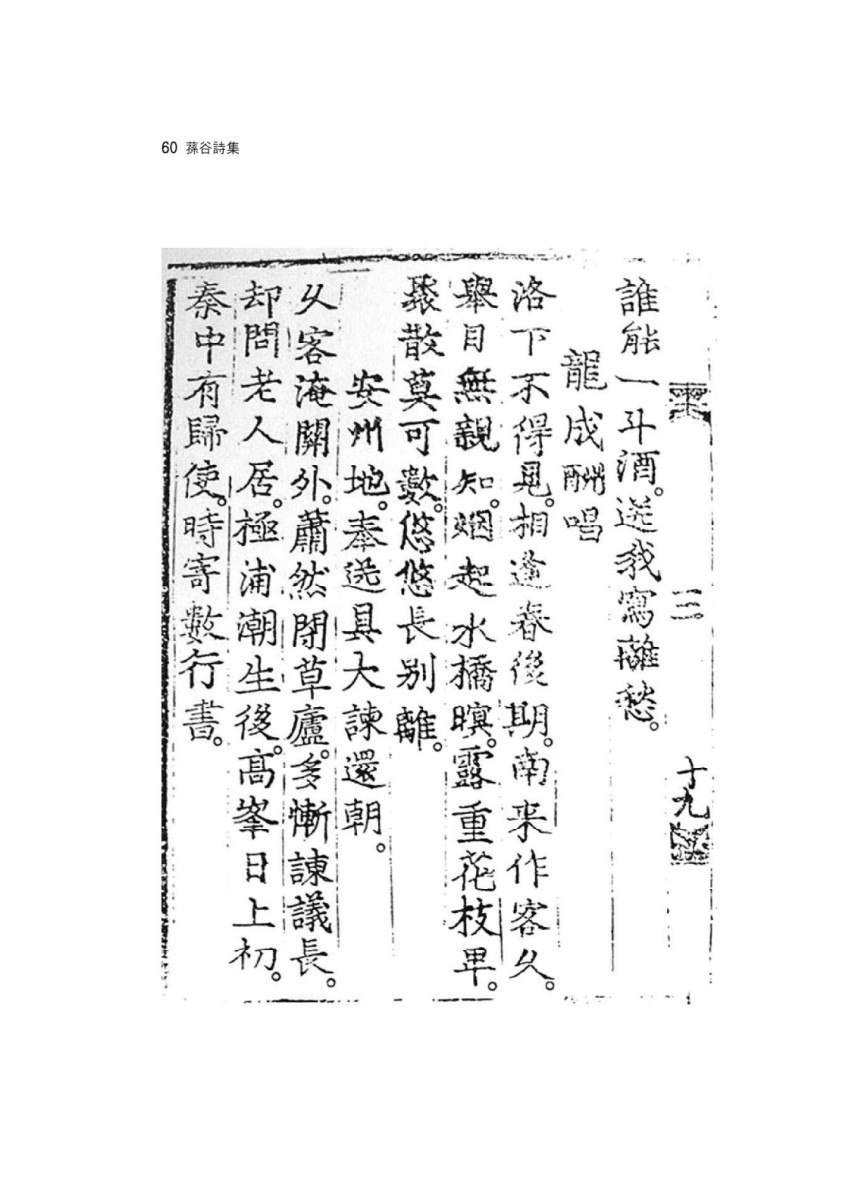 60 蓀谷詩集
誰能一斗酒。送我寫離愁。
龍成酬唱
洛下不得見。相逢春後期。南来作客久。
擧目無親知。烟起水橋暝。露重花枝卑。
聚散莫可數。悠悠長別離。
安州地。奉送具大諫還朝。
久客淹關外。蕭然閉草廬。多慚諫議長。
却問老人居。極浦潮生後。高峯日上初。
秦中有歸使。時寄數行書。
三
十九